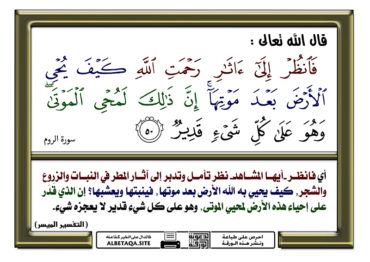 قال الله تعالى :
فَٱنظُرۡ إِلَىٰٓ ءَاثَٰرِ رَحۡمَتِ ٱللَّهِ كَيۡفَ يُحۡيِ
ٱلۡأَرۡضَ بَعۡدَ مَوۡتِهَآۚ إِنَّ ذَٰلِكَ لَمُحۡيِ ٱلۡمَوۡتَىٰۖ
وَهُوَ عَلَىٰ كُلِّ شَيۡءٖ قَدِيرٞ ٥٠
سورة الروم
أي فانظر -أيها المشاهد- نظر تأمل وتدبر إلى آثار المطر في النبات والزروع
والشجر، كيف يحيي به الله الأرض بعد موتها، فينبتها ويعشبها؟ إن الذي قدر
على إحياء هذه الأرض لمحيي الموتى، وهو على كل شيء قدير لا يعجزه شيء.
( التفسير الميسر )
فالدال على الخير كفاعله
ALBETAQA.SITE
احرص على طباعة
ونشر هذه الورقة